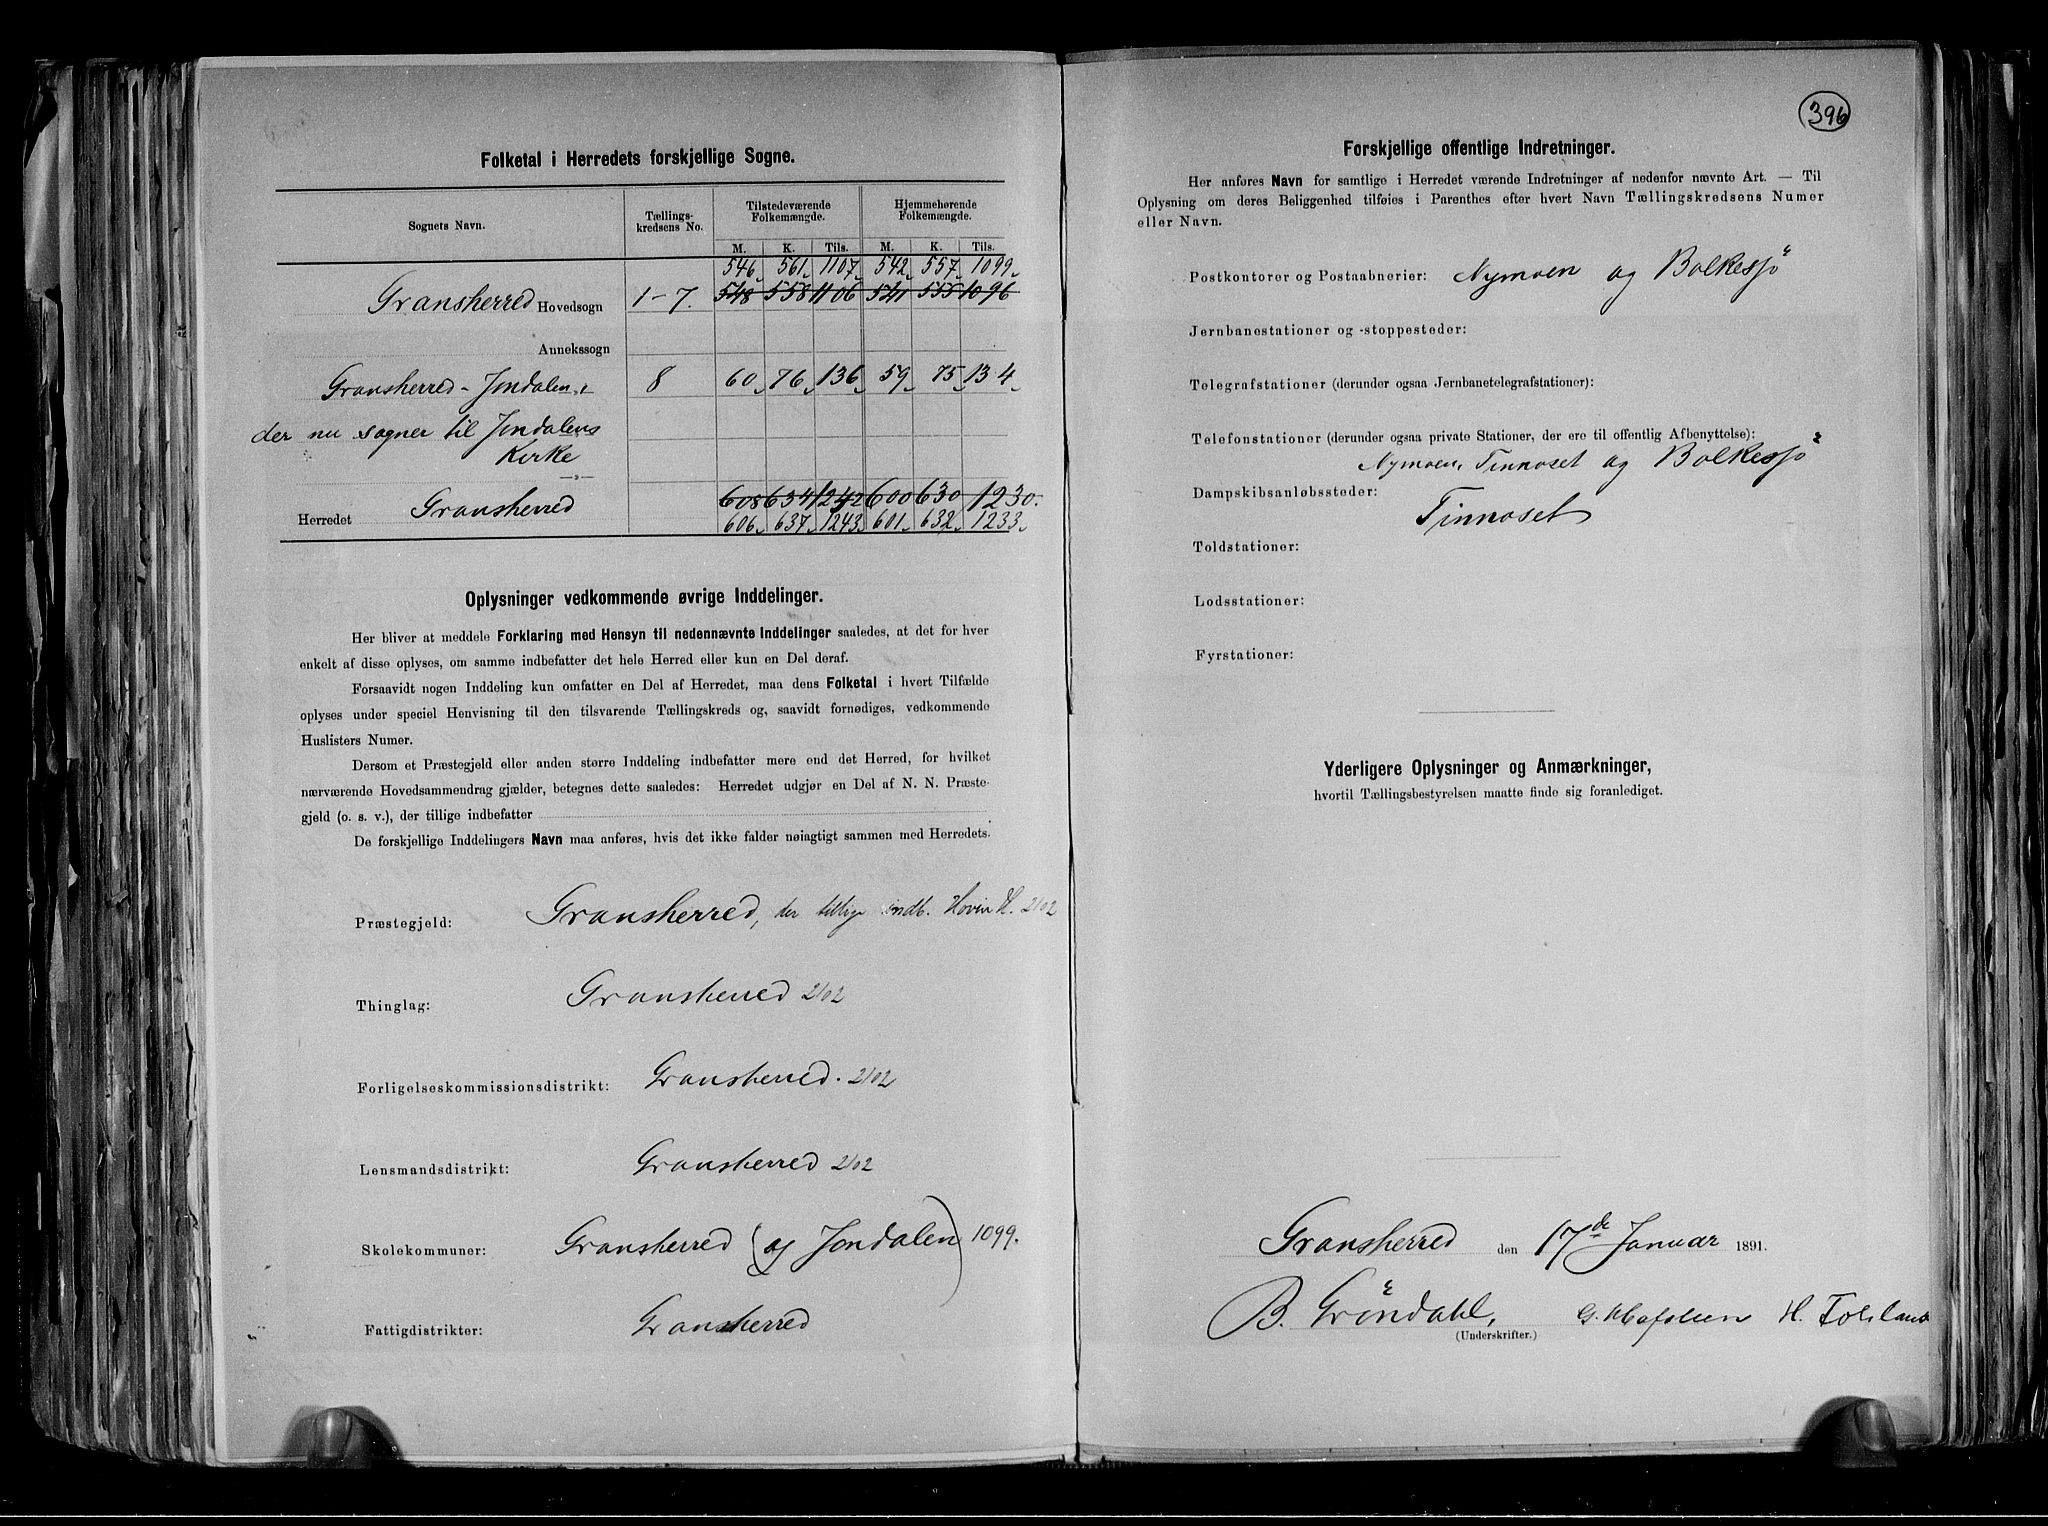 Folketal i Herredets forskjellige Sogne.
Sognets Navn. Tællings-kredsens No. Tilstedeværende Folkemængde. Hjemmehørende Folkemængde.
M. K. Tils. M. K. Tils.
546 561 1107 542 557 1099
Gransherred Hovedsogn 1-7. 548 558 1106 541 555 1096
Annekssogn
Gransherred - Jondalen, 8 60 76 136 59 75 134
der nu sogner til Jondalens
Kirke
Herredet Gransherred 608 634 1242 600 630 1230.
606 637 1243 601 632 1233
Oplysninger vedkommende øvrige Inddelinger.
Her bliver at meddele Forklaring med Hensyn til nedennævnte Inddelinger saaledes, at det for hver
enkelt af disse oplyses, om samme indbefatter det hele Herred eller kun en Del deraf.
Forsaavidt nogen Inddeling kun omfatter en Del af Herredet, maa dens Folketal i hvert Tilfælde
oplyses under speciel Henvisning til den tilsvarende Tællingskreds og, saavidt fornødiges, vedkommende
Huslisters Numer.
Dersom et Præstegjeld eller anden større Inddeling indbefatter mere end det Herred, for hvilket
nærværende Hovedsammendrag gjælder, betegnes dette saaledes: Herredet udgjør en Del af N. N. Præste-
gjeld (o. s. v.), der tillige indbefatter
De forskjellige Inddelingers Navn maa anføres, hvis det ikke falder nøiagtigt sammen med Herredets.
Præstegjeld: Gransherred, der tillige indb. Hovin H. 2102
Thinglag: Gransherred 2102
Forligelseskommissionsdistrikt: Gransherred. 2102
Lensmandsdistrikt: Gransherred 2102
Skolekommuner: Gransherred (og Jondalen) 1099.
Fattigdistrikter: Gransherred
396
Forskjellige offentlige Indretninger.
Her anføres Navn for samtlige i Herredet værende Indretninger af nedenfor nævnte Art. — Til
Oplysning om deres Beliggenhed tilføies i Parenthes efter hvert Navn Tællingskredsens Numer
eller Navn.
Postkontorer og Postaabnerier: Nymoen og Bolkesjö
Jernbanestationer og -stoppesteder:
Telegrafstationer (derunder ogsaa Jernbanetelegrafstationer):
Telefonstationer (derunder ogsaa private Stationer, der ere til offentlig Afbenyttelse):
Nymoen, Tinnoset og Bolkesjö
Dampskibsanløbssteder: Tinnoset
Toldstationer:
Lodsstationer:
Fyrstationer:
Yderligere Oplysninger og Anmærkninger,
hvortil Tællingsbestyrelsen maatte finde sig foranlediget.
Gransherred den 17de Januar 1891.
B. Gröndahl, H.
(Underskrifter.)